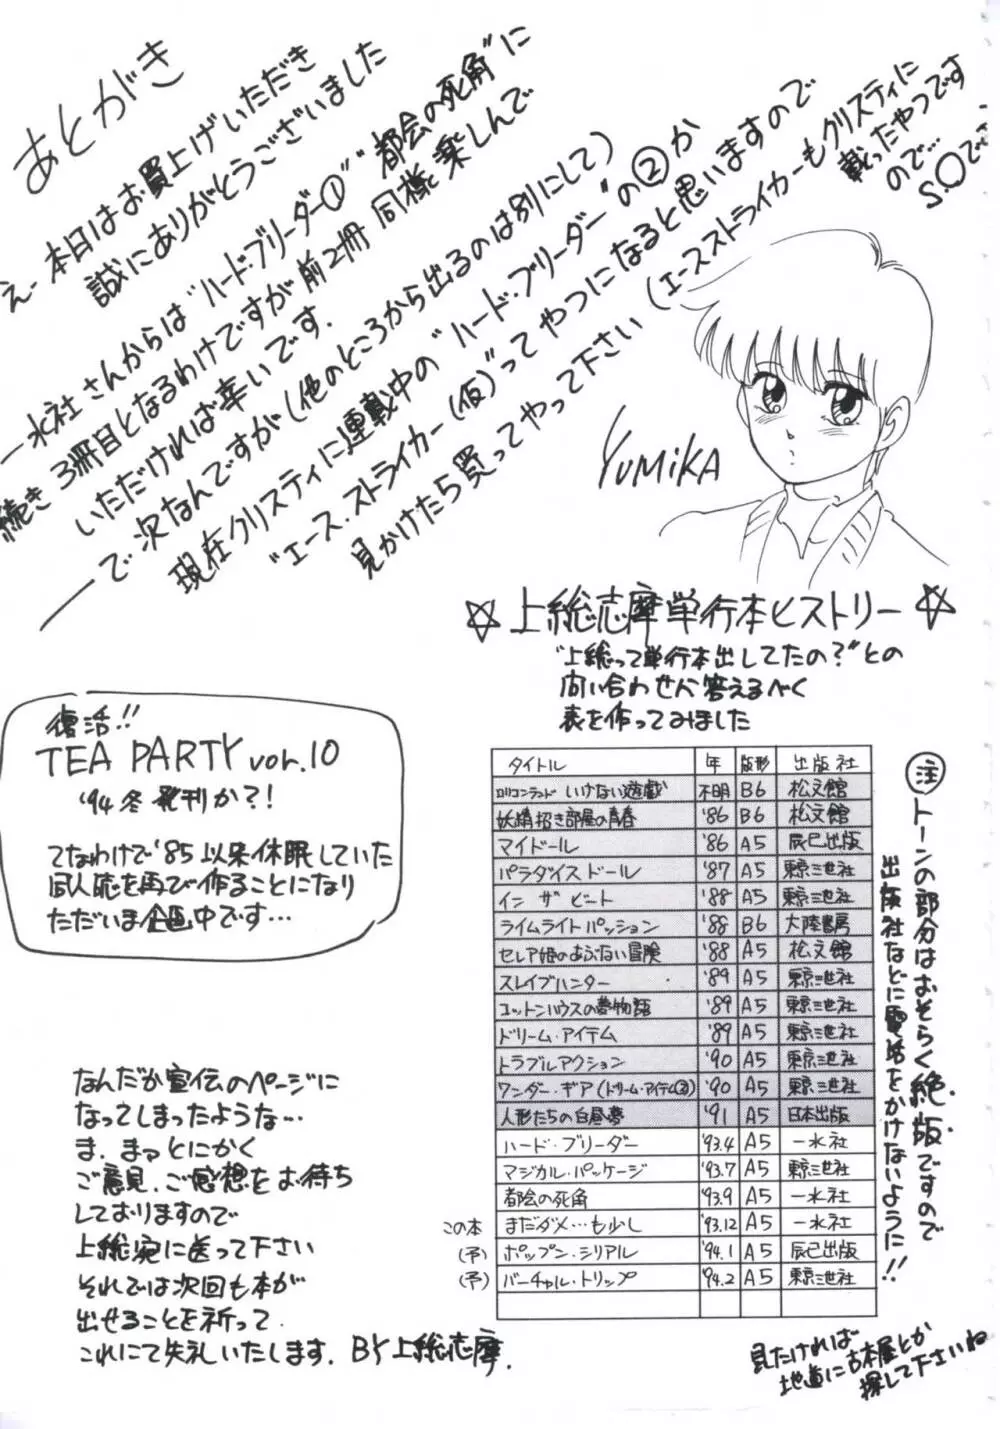 あとがき
えー本日はお買上げいただき
誠にありがとうございました
一水社さんからは"ハード・ブリーダー①""都会の死角"に
続き3冊目となるわけですが前2冊同様楽しんで
いただければ幸いです.
で次なんですが(他のところから出るのは別にして)
現在クリスティに連載中の"ハード・ブリーダー"の②か
"エース・ストライカー(仮)"ってやつになると思いますので
見かけたら買ってやって下さい(エースストライカーもクリスティに
載ったやつです
ので…
S.O.で
YUMIKA
☆上総志摩単行本ヒストリー☆
"上総って単行本出してたの?"との
問い合わせに答えるべく
表を作ってみました
復活!!
TEA PARTY vol.10
'94冬発刊か?!
てなわけで'85以来休眠していた
同人誌を再び作ることになり
ただいま企画中です…
タイトル 年 版形 出版社
ロリコンランド いけない遊戯 不明 B6 松文館
妖精招き部屋の青春 '86 B6 松文館
マイドール '86 A5 辰巳出版
パラダイスドール '87 A5 東京三世社
イン ザ ビート '88 A5 東京三世社
ライムライトパッション '88 B6 大陸書房
セレア姫のあぶない冒険 '88 A5 松文館
スレイブハンター '89 A5 東京三世社
コットンハウスの夢物語 '89 A5 東京三世社
ドリーム・アイテム '89 A5 東京三世社
トラブルアクション '90 A5 東京三世社
ワンダー・ギア(ドリーム・アイテム②) '90 A5 東京三世社
人形たちの白昼夢 '91 A5 日本出版
ハード・ブリーダー '93.4 A5 一水社
マジカル・パッケージ '93.7 A5 東京三世社
都会の死角 '93.9 A5 一水社
この本 まだダメ…も少し '93.12 A5 一水社
(予) ポップン・シリアル '94.1 A5 辰巳出版
(予) バーチャル・トリップ '94.2 A5 東京三世社
注 トーンの部分はおそらく絶版ですので
出版社などに電話をかけないように!!
なんだか宣伝のページに
なってしまったような…
ま.まっとにかく
ご意見.ご感想をお待ち
しておりますので
上総宛に送って下さい
それでは次回も本が
出せることを祈って.
これにて失礼いたします. BY上総志摩.
見たければ
地道に古本屋とか
探して下さいね